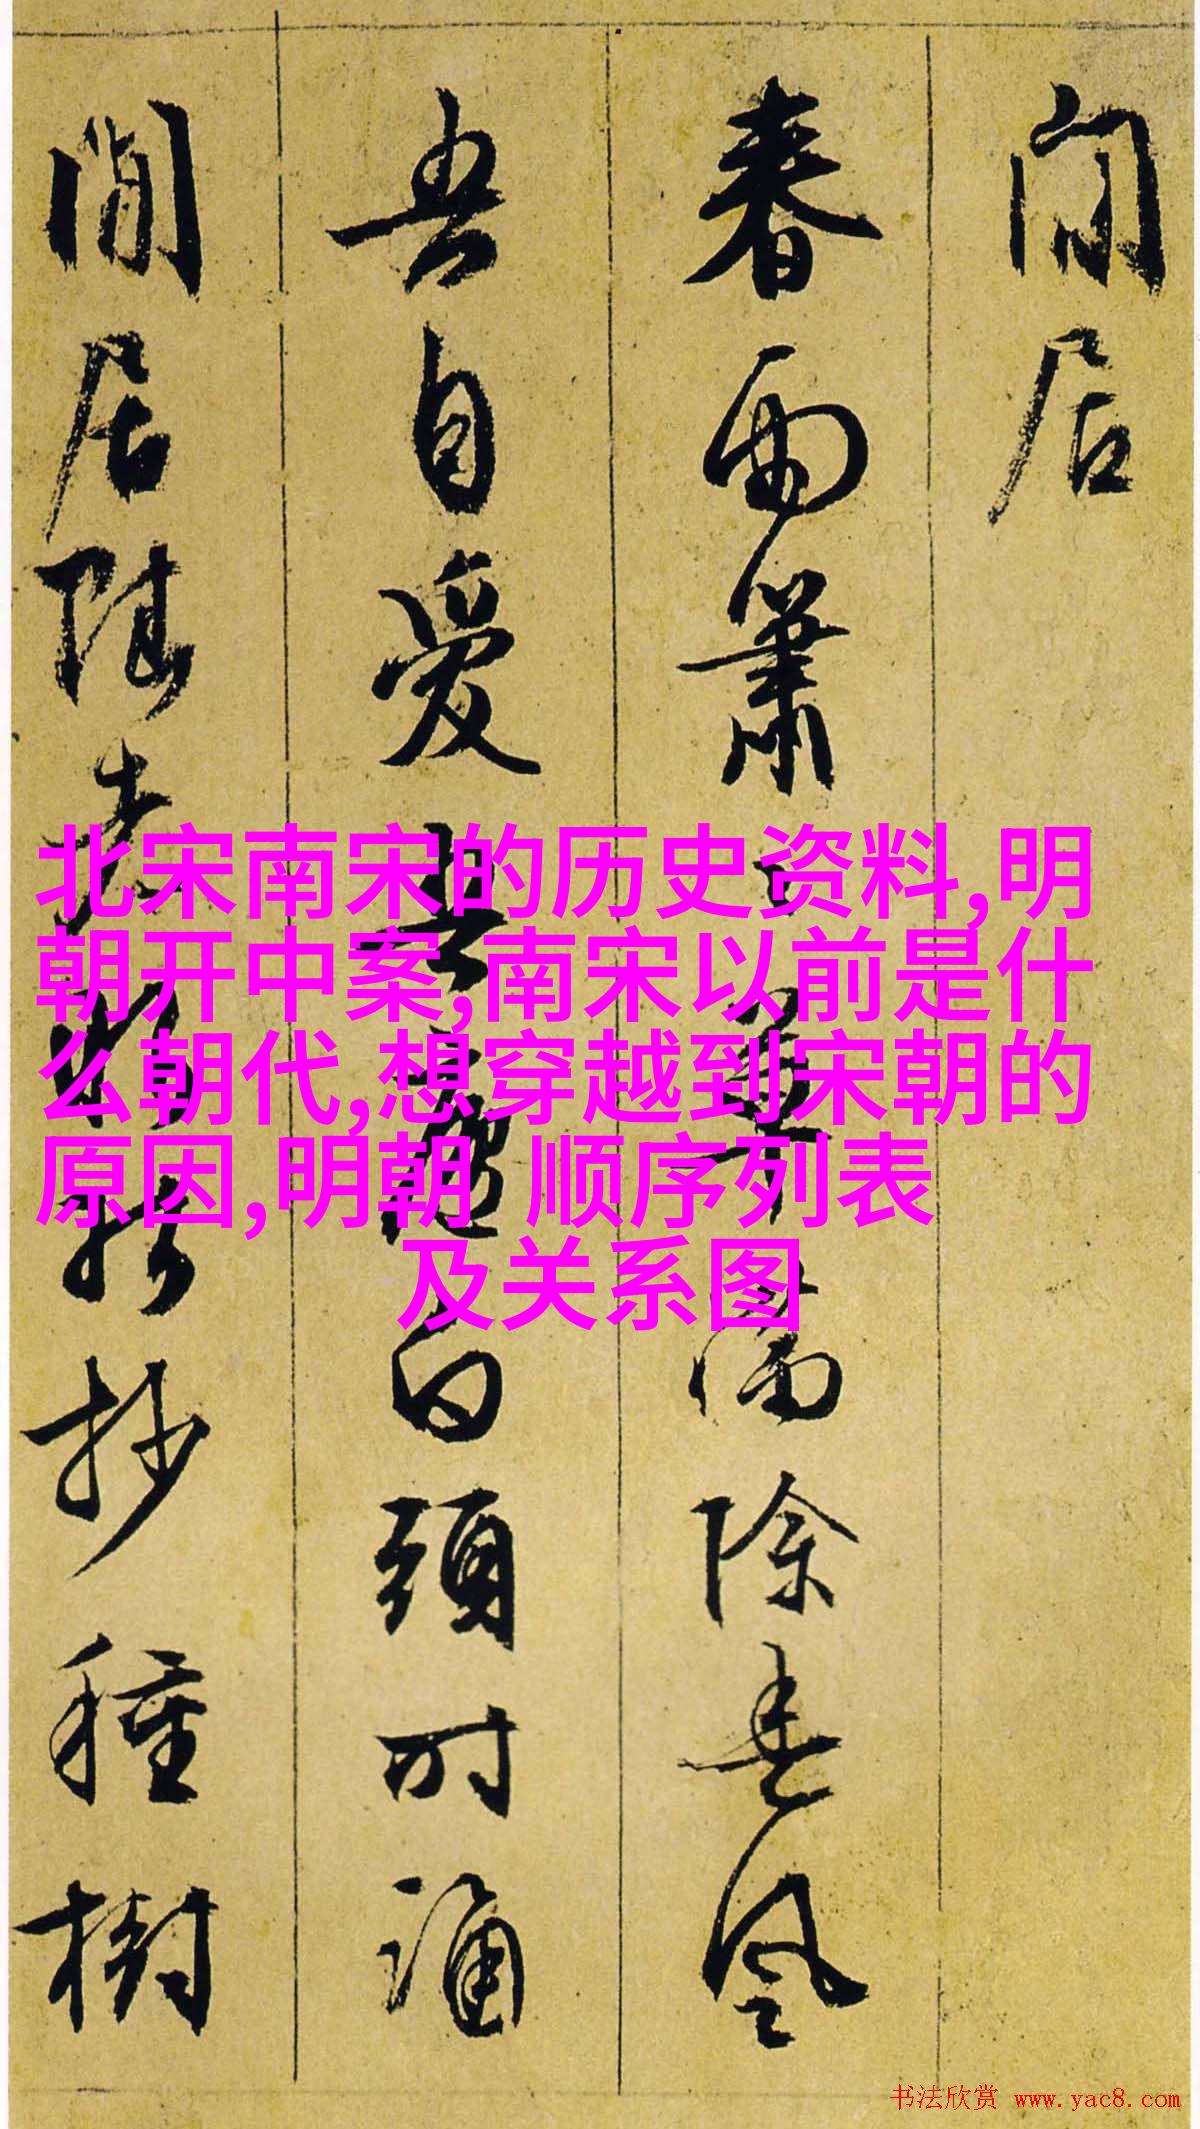 闲居
春雨蕭〻滿除春風
吾自愛吾廬白頭時誦
閒居老抄種樹
北宋南宋的历史资料,明
朝开中案,南宋以前是什
么朝代,想穿越到宋朝的
原因,明朝 顺序列表
及关系图
书法欣赏 www.yac8.com